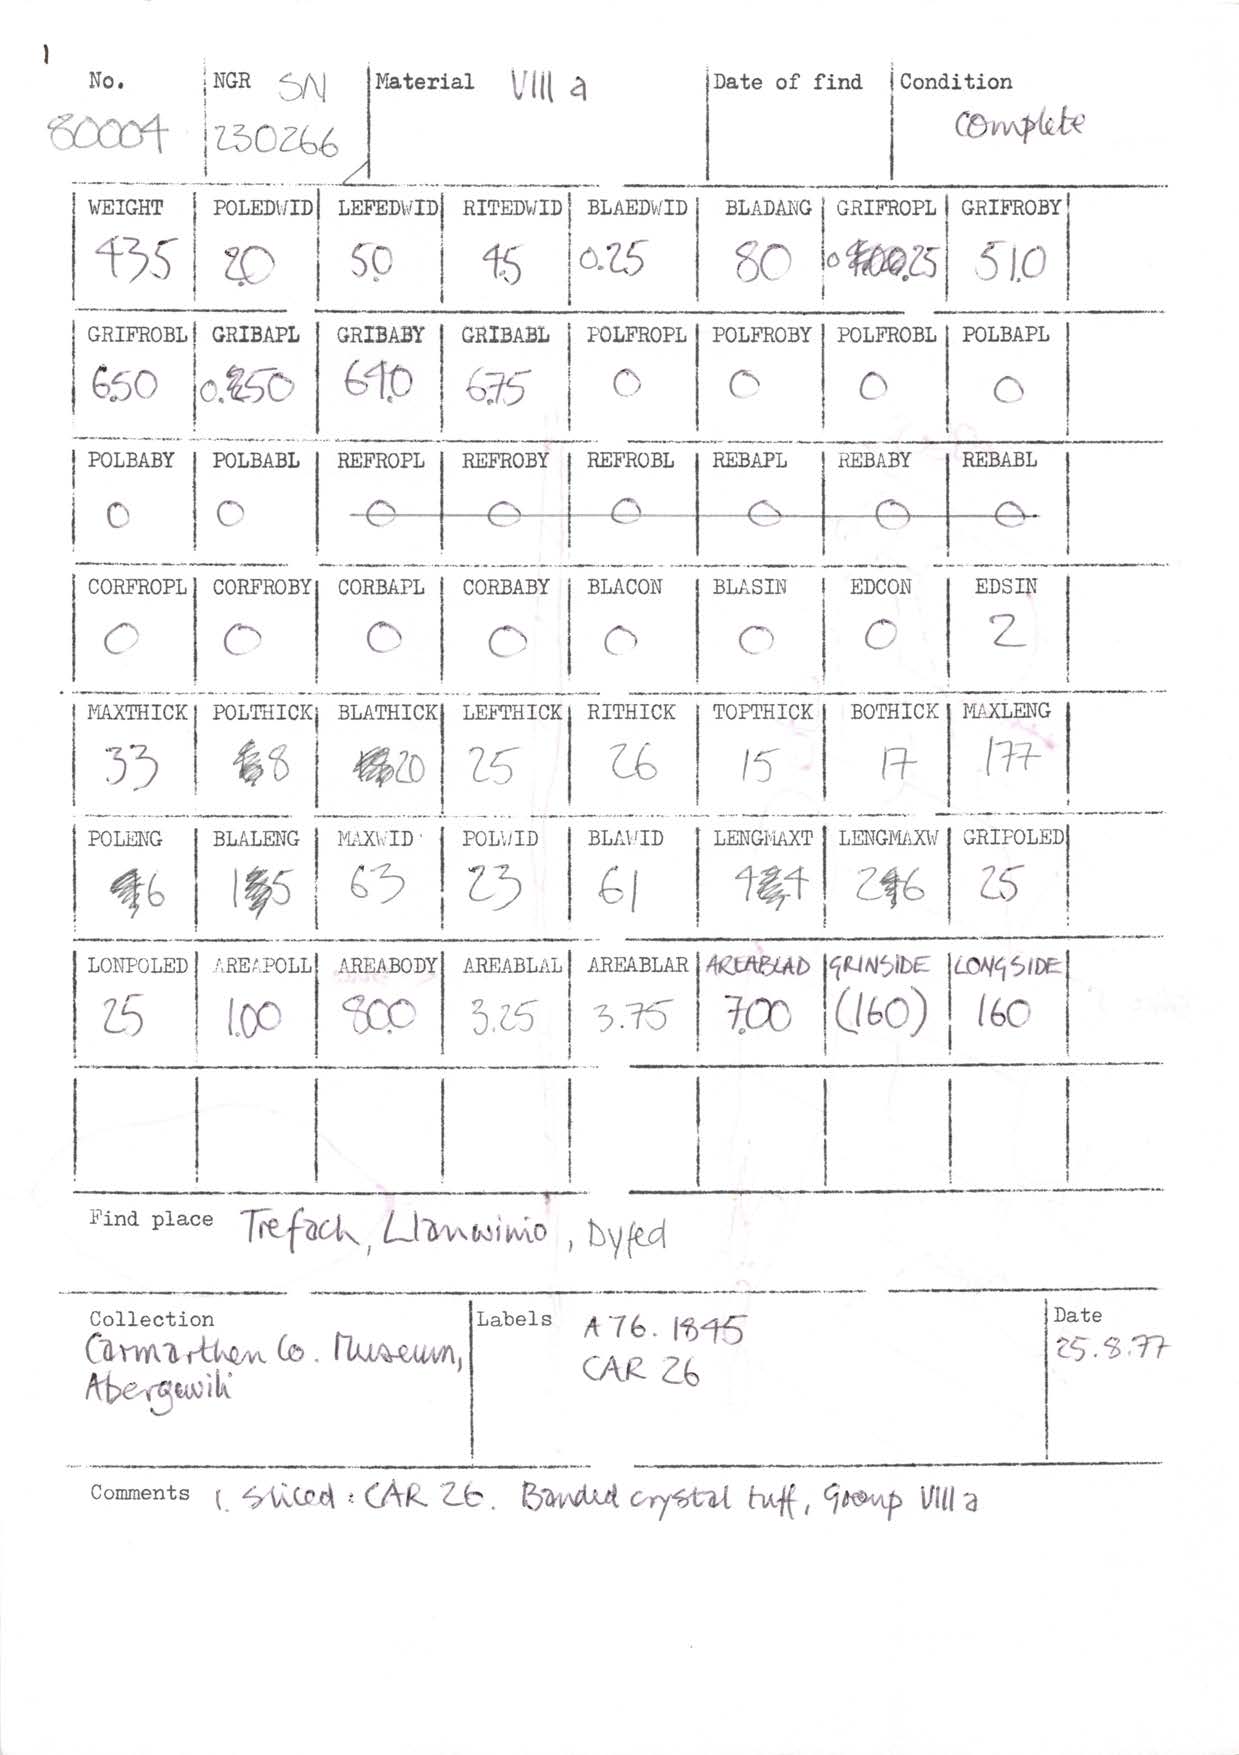 1
No. NGR SN Material VIII a Date of find Condition
80004 230266 complete
WEIGHT POLEDWID LEFEDWID RITEDWID BLAEDWID BLADANG GRIFROPL GRIFROBY
435 2.0 5.0 4.5 0.25 80 0.25 51.0
GRIFROBL GRIBAPL GRIBABY GRIBABL POLFROPL POLFROBY POLFROBL POLBAPL
6.50 0.250 64.0 6.75 0 0 0 0
POLBABY POLBABL REFROPL REFROBY REFROBL REBAPL REBABY REBABL
0 0 0 0 0 0 0 0
CORFROPL CORFROBY CORBAPL CORBABY BLACON BLASIN EDCON EDSIN
0 0 0 0 0 0 0 2
MAXTHICK POLTHICK BLATHICK LEFTHICK RITHICK TOPTHICK BOTHICK MAXLENG
33 8 20 25 26 15 17 177
POLENG BLALENG MAXWID POLWID BLAWID LENGMAXT LENGMAXW GRIPOLED
6 15 63 23 61 44 26 25
LONPOLED AREAPOLL AREABODY AREABLAL AREABLAR AREABLAD GRINSIDE LONGSIDE
25 1.00 80.0 3.25 3.75 7.00 (160) 160
Find place Trefach, Llanwinio, Dyfed
Collection Labels A 76. 1845 Date
Carmarthen Co. Museum, CAR 26 25.8.77
Abergwili
Comments 1. Sliced : CAR 26. Banded crystal tuff, Group VIII a